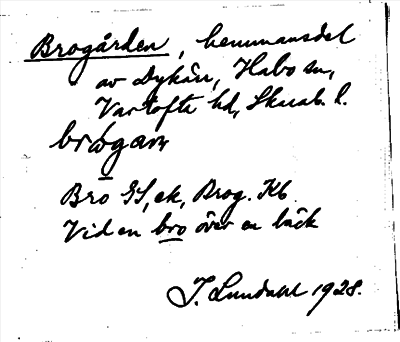 Brogården, hemmansdel
av Dykärr, Habo sn,
Vartofta hd, Skarab. l.
brógaɳ
Bro GS, ek, Brog. Kb
Vid en bro över en bäck
J. Lundahl 1928.